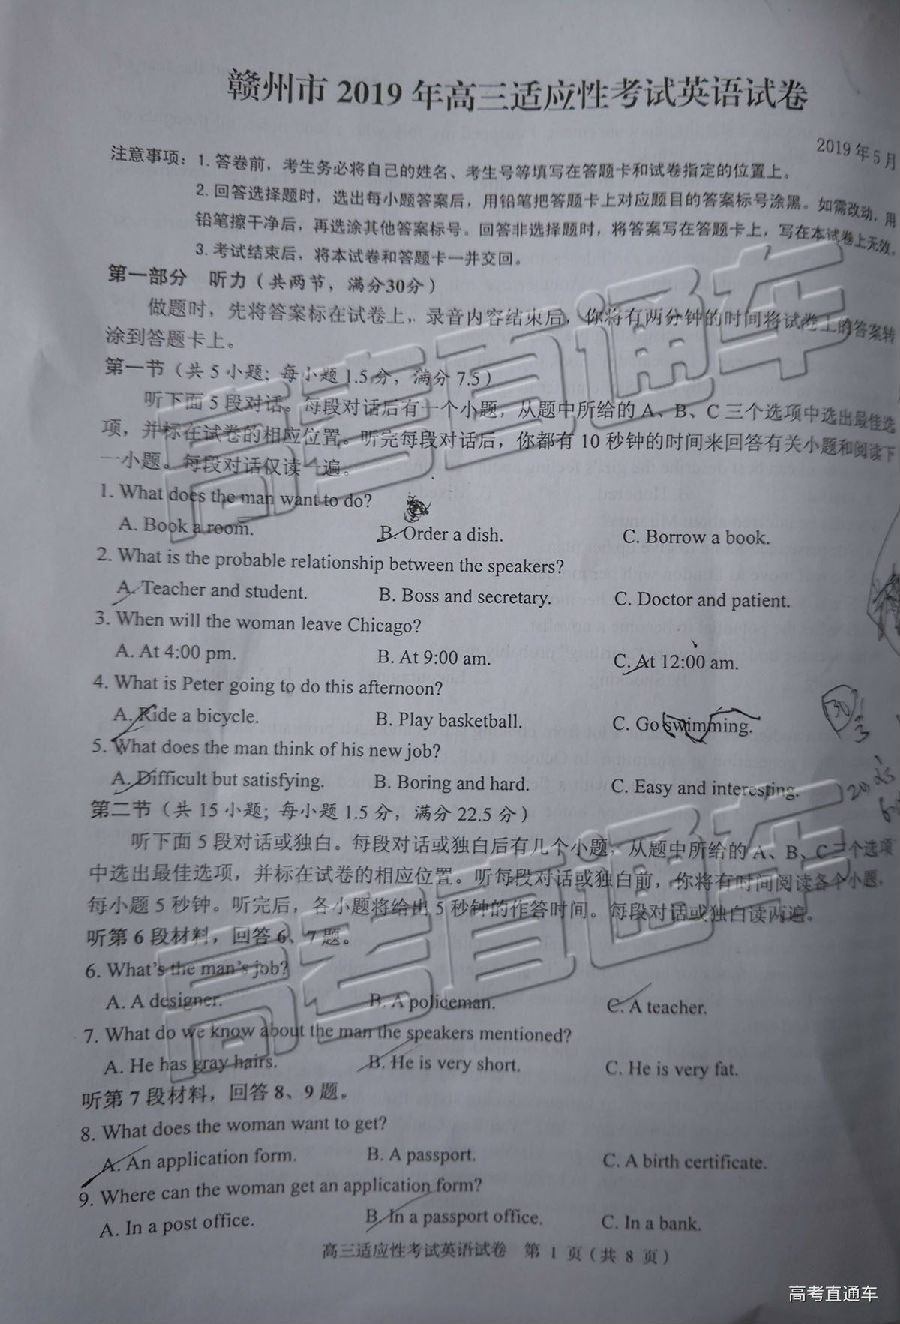 赣州市 2019 年高三适应性考试英语试卷
2019 年 5 月
注意事项：1. 答卷前，考生务必将自己的姓名、考生号等填写在答题卡和试卷指定的位置上。
2. 回答选择题时，选出每小题答案后，用铅笔把答题卡上对应题目的答案标号涂黑。如需改动，用
铅笔擦干净后，再选涂其他答案标号。回答非选择题时，将答案写在答题卡上，写在本试卷上无效。
3. 考试结束后，将本试卷和答题卡一并交回。
第一部分 听力（共两节，满分30分）
做题时，先将答案标在试卷上，录音内容结束后，你将有两分钟的时间将试卷上的答案转
涂到答题卡上。
第一节（共 5 小题；每小题 1.5 分，满分 7.5）
听下面 5 段对话。每段对话后有一个小题，从题中所给的 A、B、C 三个选项中选出最佳选
项，并标在试卷的相应位置。听完每段对话后，你都有 10 秒钟的时间来回答有关小题和阅读下
一小题。每段对话仅读一遍。
1. What does the man want to do?
A. Book a room. B. Order a dish. C. Borrow a book.
2. What is the probable relationship between the speakers?
A. Teacher and student. B. Boss and secretary. C. Doctor and patient.
3. When will the woman leave Chicago?
A. At 4:00 pm. B. At 9:00 am. C. At 12:00 am.
4. What is Peter going to do this afternoon?
A. Ride a bicycle. B. Play basketball. C. Go swimming.
5. What does the man think of his new job?
A. Difficult but satisfying. B. Boring and hard. C. Easy and interesting.
第二节（共 15 小题；每小题 1.5 分，满分 22.5 分）
听下面 5 段对话或独白。每段对话或独白后有几个小题，从题中所给的 A、B、C 三个选项
中选出最佳选项，并标在试卷的相应位置。听每段对话或独白前，你将有时间阅读各个小题，
每小题 5 秒钟。听完后，各小题将给出 5 秒钟的作答时间。每段对话或独白读两遍。
听第 6 段材料，回答 6、7 题。
6. What's the man's job?
A. A designer. B. A policeman. C. A teacher.
7. What do we know about the man the speakers mentioned?
A. He has gray hairs. B. He is very short. C. He is very fat.
听第 7 段材料，回答 8、9 题。
8. What does the woman want to get?
A. An application form. B. A passport. C. A birth certificate.
9. Where can the woman get an application form?
A. In a post office. B. In a passport office. C. In a bank.
高三适应性考试英语试卷 第 1 页（共 8 页）
高考直通车
高考直通车
高考直通车